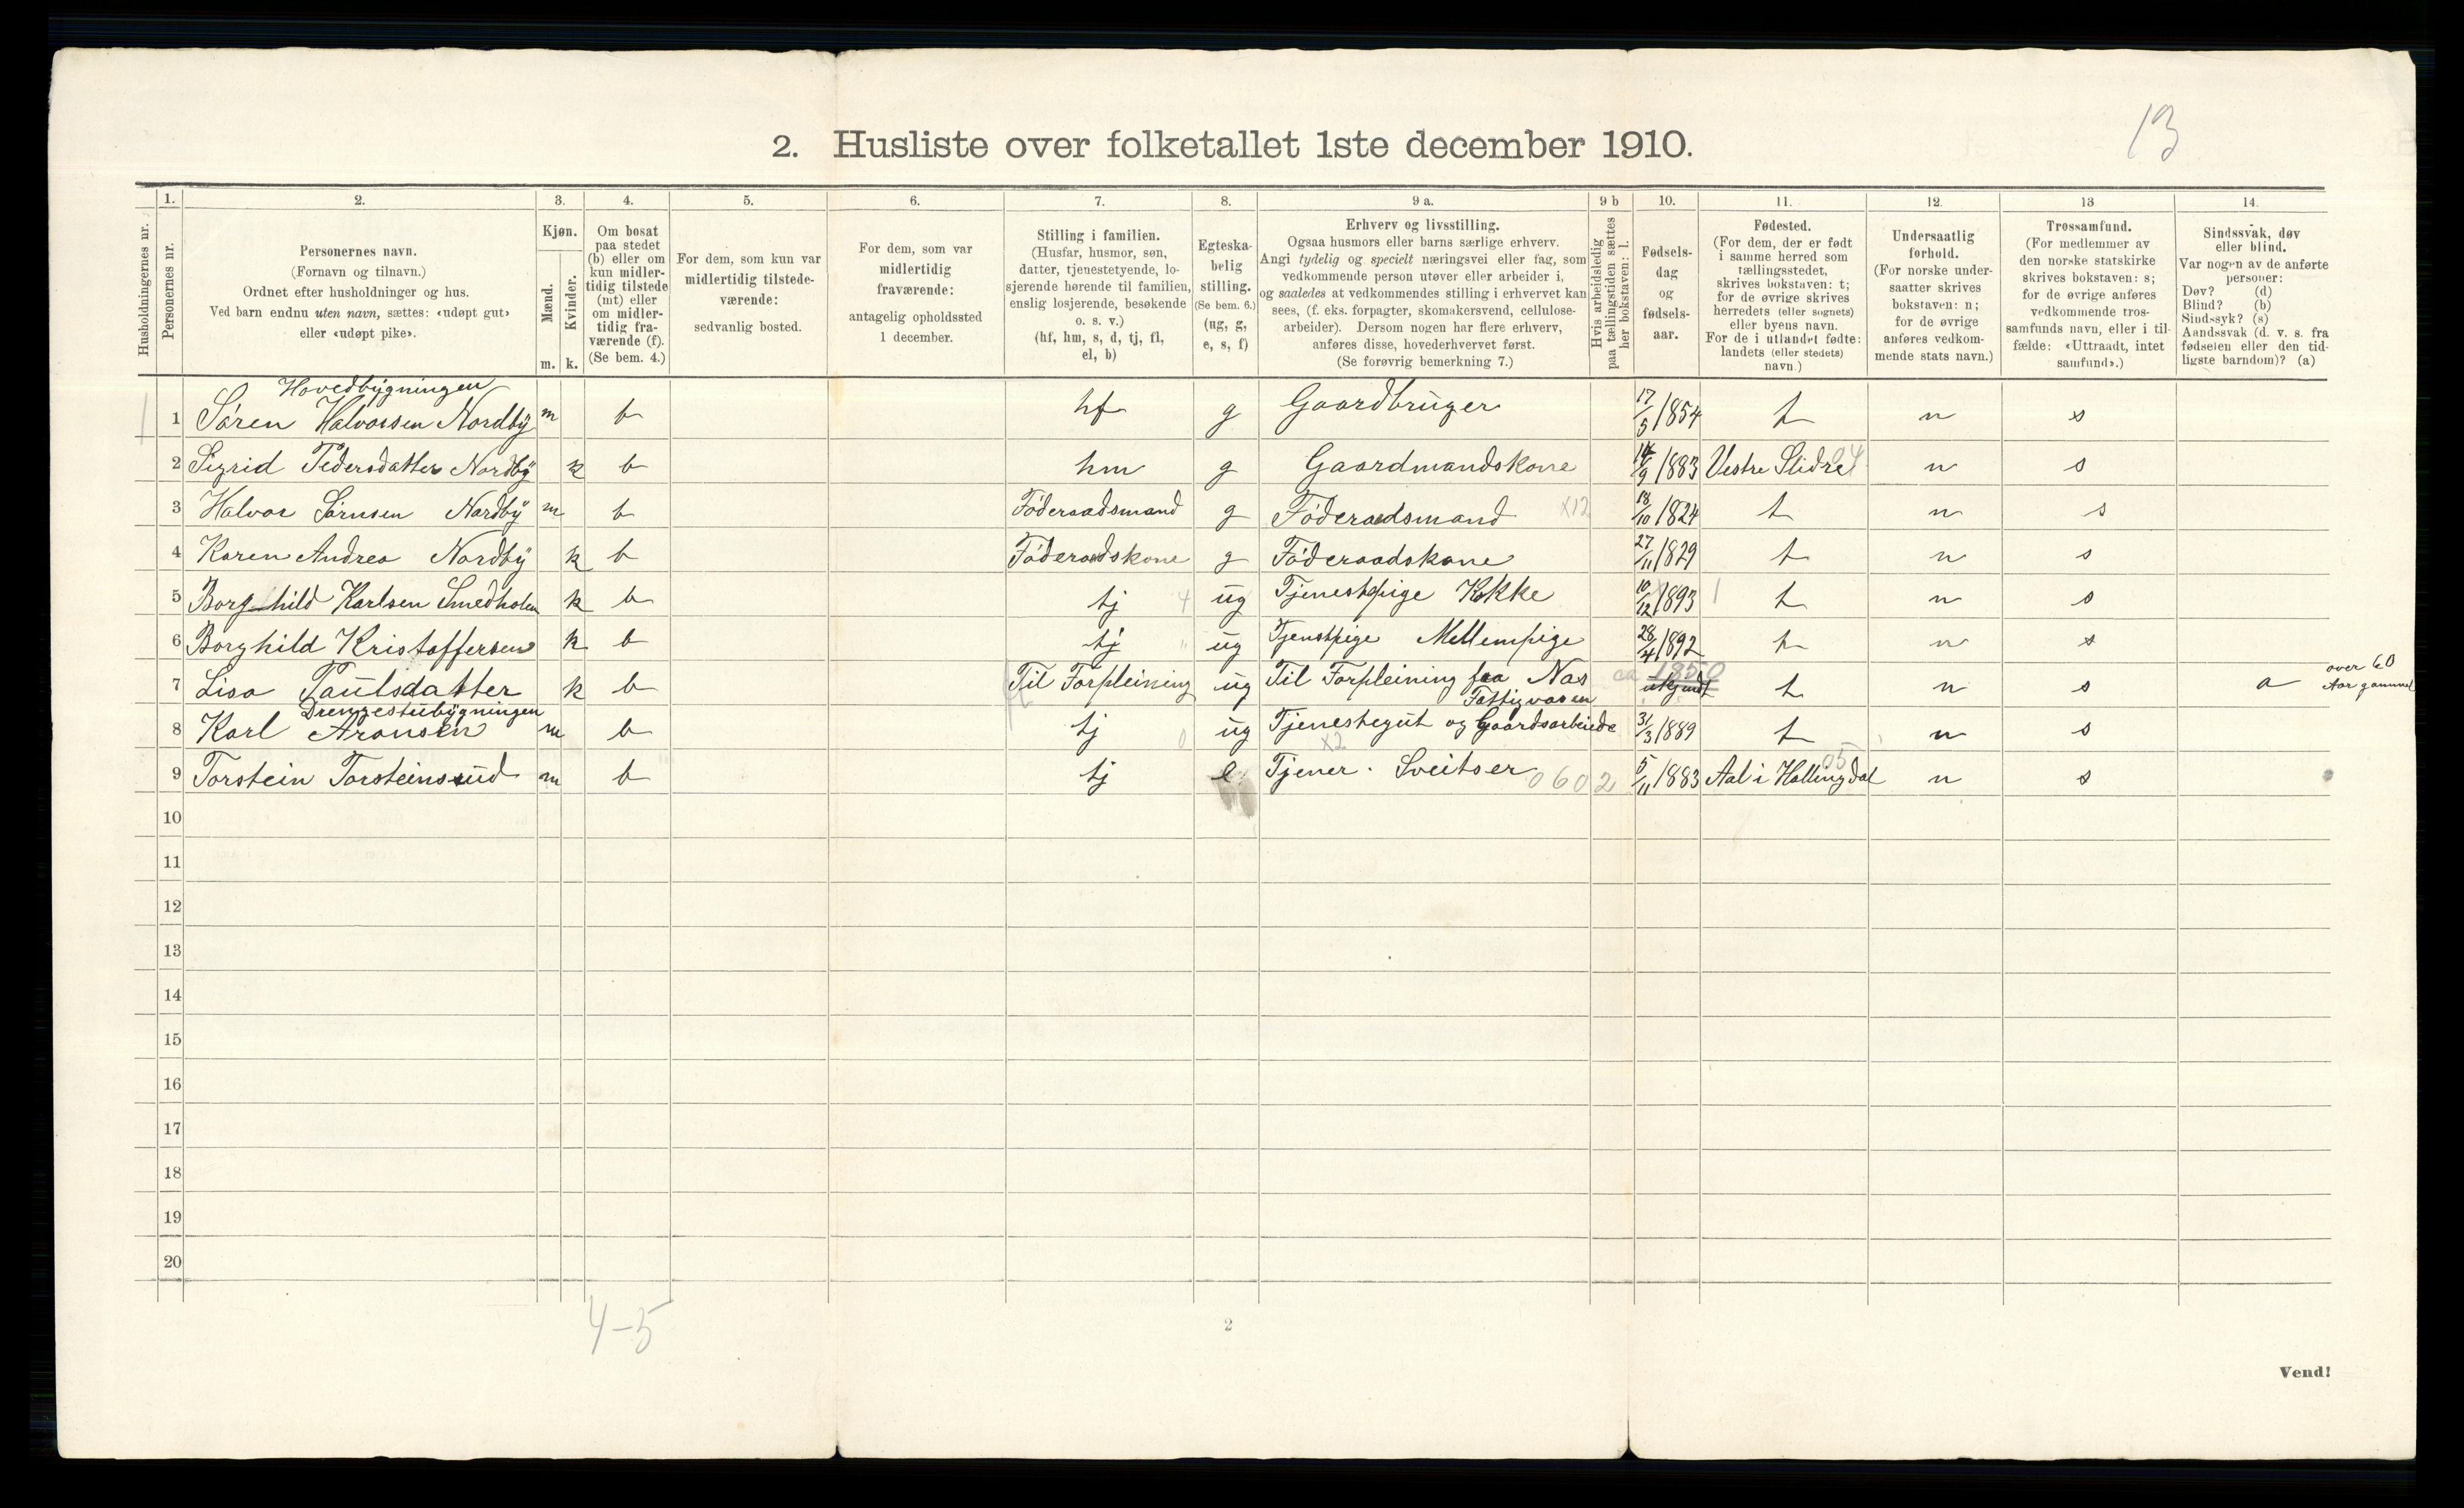 13
2. Husliste over folketallet 1ste december 1910.
Husholdningernes nr.
1.
Personernes nr.
2.
Personernes navn.
(Fornavn og tilnavn.)
Ordnet efter husholdninger og hus.
Ved barn endnu uten navn, sættes: «udøpt gut»
eller «udøpt pike».
3.
Kjøn.
Mænd.
Kvinder.
m. k.
4.
Om bosat
paa stedet
(b) eller om
kun midler-
tidig tilstede
(mt) eller
om midler-
tidig fra-
værende (f).
(Se bem. 4.)
5.
For dem, som kun var
midlertidig tilstede-
værende:
sedvanlig bosted.
6.
For dem, som var
midlertidig
fraværende:
antagelig opholdssted
1 december.
7.
Stilling i familien.
(Husfar, husmor, søn,
datter, tjenestetyende, lo-
sjerende hørende til familien,
enslig losjerende, besøkende
o. s. v.)
(hf, hm, s, d, tj, fl,
el, b)
8.
Egteska-
belig
stilling.
(Se bem. 6.)
(ug, g,
e, s, f)
9 a.
Erhverv og livsstilling.
Ogsaa husmors eller barns særlige erhverv.
Angi tydelig og specielt næringsvei eller fag, som
vedkommende person utøver eller arbeider i,
og saaledes at vedkommendes stilling i erhvervet kan
sees, (f. eks. forpagter, skomakersvend, cellulose-
arbeider). Dersom nogen har flere erhverv,
anføres disse, hovederhvervet først.
(Se forøvrig bemerkning 7.)
9 b
Hvis arbeidsledig
paa tællingstiden sættes
her bokstaven: l.
10.
Fødsels-
dag
og
fødsels-
aar.
11.
Fødested.
(For dem, der er født
i samme herred som
tællingsstedet,
skrives bokstaven: t;
for de øvrige skrives
herredets (eller sognets)
eller byens navn.
For de i utlandet fødte:
landets (eller stedets)
navn.)
12.
Undersaatlig
forhold.
(For norske under-
saatter skrives
bokstaven: n;
for de øvrige
anføres vedkom-
mende stats navn.)
13
Trossamfund.
(For medlemmer av
den norske statskirke
skrives bokstaven: s;
for de øvrige anføres
vedkommende tros-
samfunds navn, eller i til-
fælde: «Uttraadt, intet
samfund».)
14.
Sindssvak, døv
eller blind.
Var nogen av de anførte
personer:
Døv? (d)
Blind? (b)
Sindssyk? (s)
Aandssvak (d. v. s. fra
fødselen eller den tid-
ligste barndom)? (a)
Hovedbygningen
1 1 Sören Halvorsen Nordby m b hf g Gaardbruger 17/5 1854 t n s
2 Sigrid Pedersdatter Nordby k b hm g Gaardmandskone 14/9 1883 Vestre Slidre 04 n s
3 Halvor Sörnsen Nordby m b Föderaadsmand g Föderaadsmand x12 18/10 1824 t n s
4 Karen Andrea Nordby k b Föderaadskone g Föderaadskone 27/11 1829 t n s
5 Borghild Karlsen Smedholen k b tj 4 ug Tjenestpige Kokke 10/12 1893 1 t n s
6 Borghild Kristoffersen k b tj " ug Tjenstpige Mellempige 28/4 1892 t n s
7 Lisa Paulsdatter k b Til Forpleining ug Til Forpleining fra Nas Fattigvæsen ca 1850 ukjendt t n s a over 60 Aar gammel
Drengestubygningen
8 Karl Aronsen m b tj 0 ug Tjenestegut og Gaardsarbeide 31/3 1889 t n s
x2
9 Torstein Torsteinsrud m b tj e. Tjener. Sveitser 0602 5/11 1883 Aal i Hallingdal 05 n s
10
11
12
13
14
15
16
17
18
19
20
4-5
2
Vend!